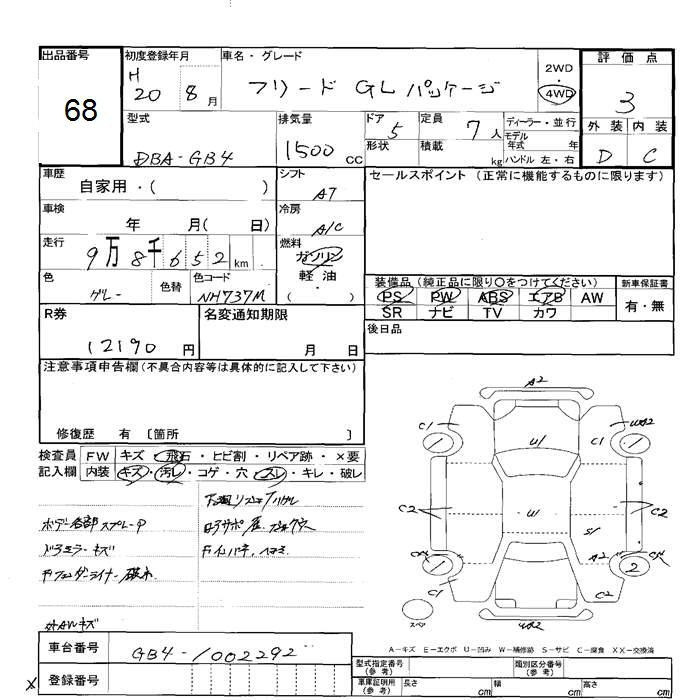 出品番号 初度登録年月 車名・グレード 2WD・4WD 評価点
68 H20 8月 フリード GL パッケージ 3
型式 排気量 ドア 定員 ディーラー・並行 外装 内装
DBA-GB4 1500cc 5 7人 モデル年式 年 D C
形状 積載 kg ハンドル 左・右
車歴 シフト セールスポイント (正常に機能するものに限ります)
自家用・( ) AT
車検 冷房
年 月( 日) A/C
走行 燃料
9万8千652km ガソリン
軽油
( )
色 色替 色コード 装備品 (純正品に限り○をつけてください) 新車保証書
グレー NH737M PS PW ABS エアB AW 有・無
SR ナビ TV カワ
R券 名変通知期限 後日品
12190円 月 日
注意事項申告欄(不具合内容等は具体的に記入して下さい)
修復歴 有 〔箇所 〕
検査員 FW キズ・飛石・ヒビ割・リペア跡・×要
記入欄 内装 キズ・汚レ・コゲ・穴・スレ・キレ・破レ
ボデー各部スプレーP
ドアミラーキズ
Fフェンダーライナー破れ
外AWキズ
A2
C1 C1 WA2
U1
C2 U1 C2
S1
A2
C1 2 C2
スペア WA2
A-キズ E-エクボ U-凹み W-補修跡 S-サビ C-腐食 XX-交換済
車台番号 GB4-1002292 型式指定番号(参考) 類別区分番号(参考)
X 登録番号 車庫証明用(参考) 長さ cm 幅 cm 高さ cm